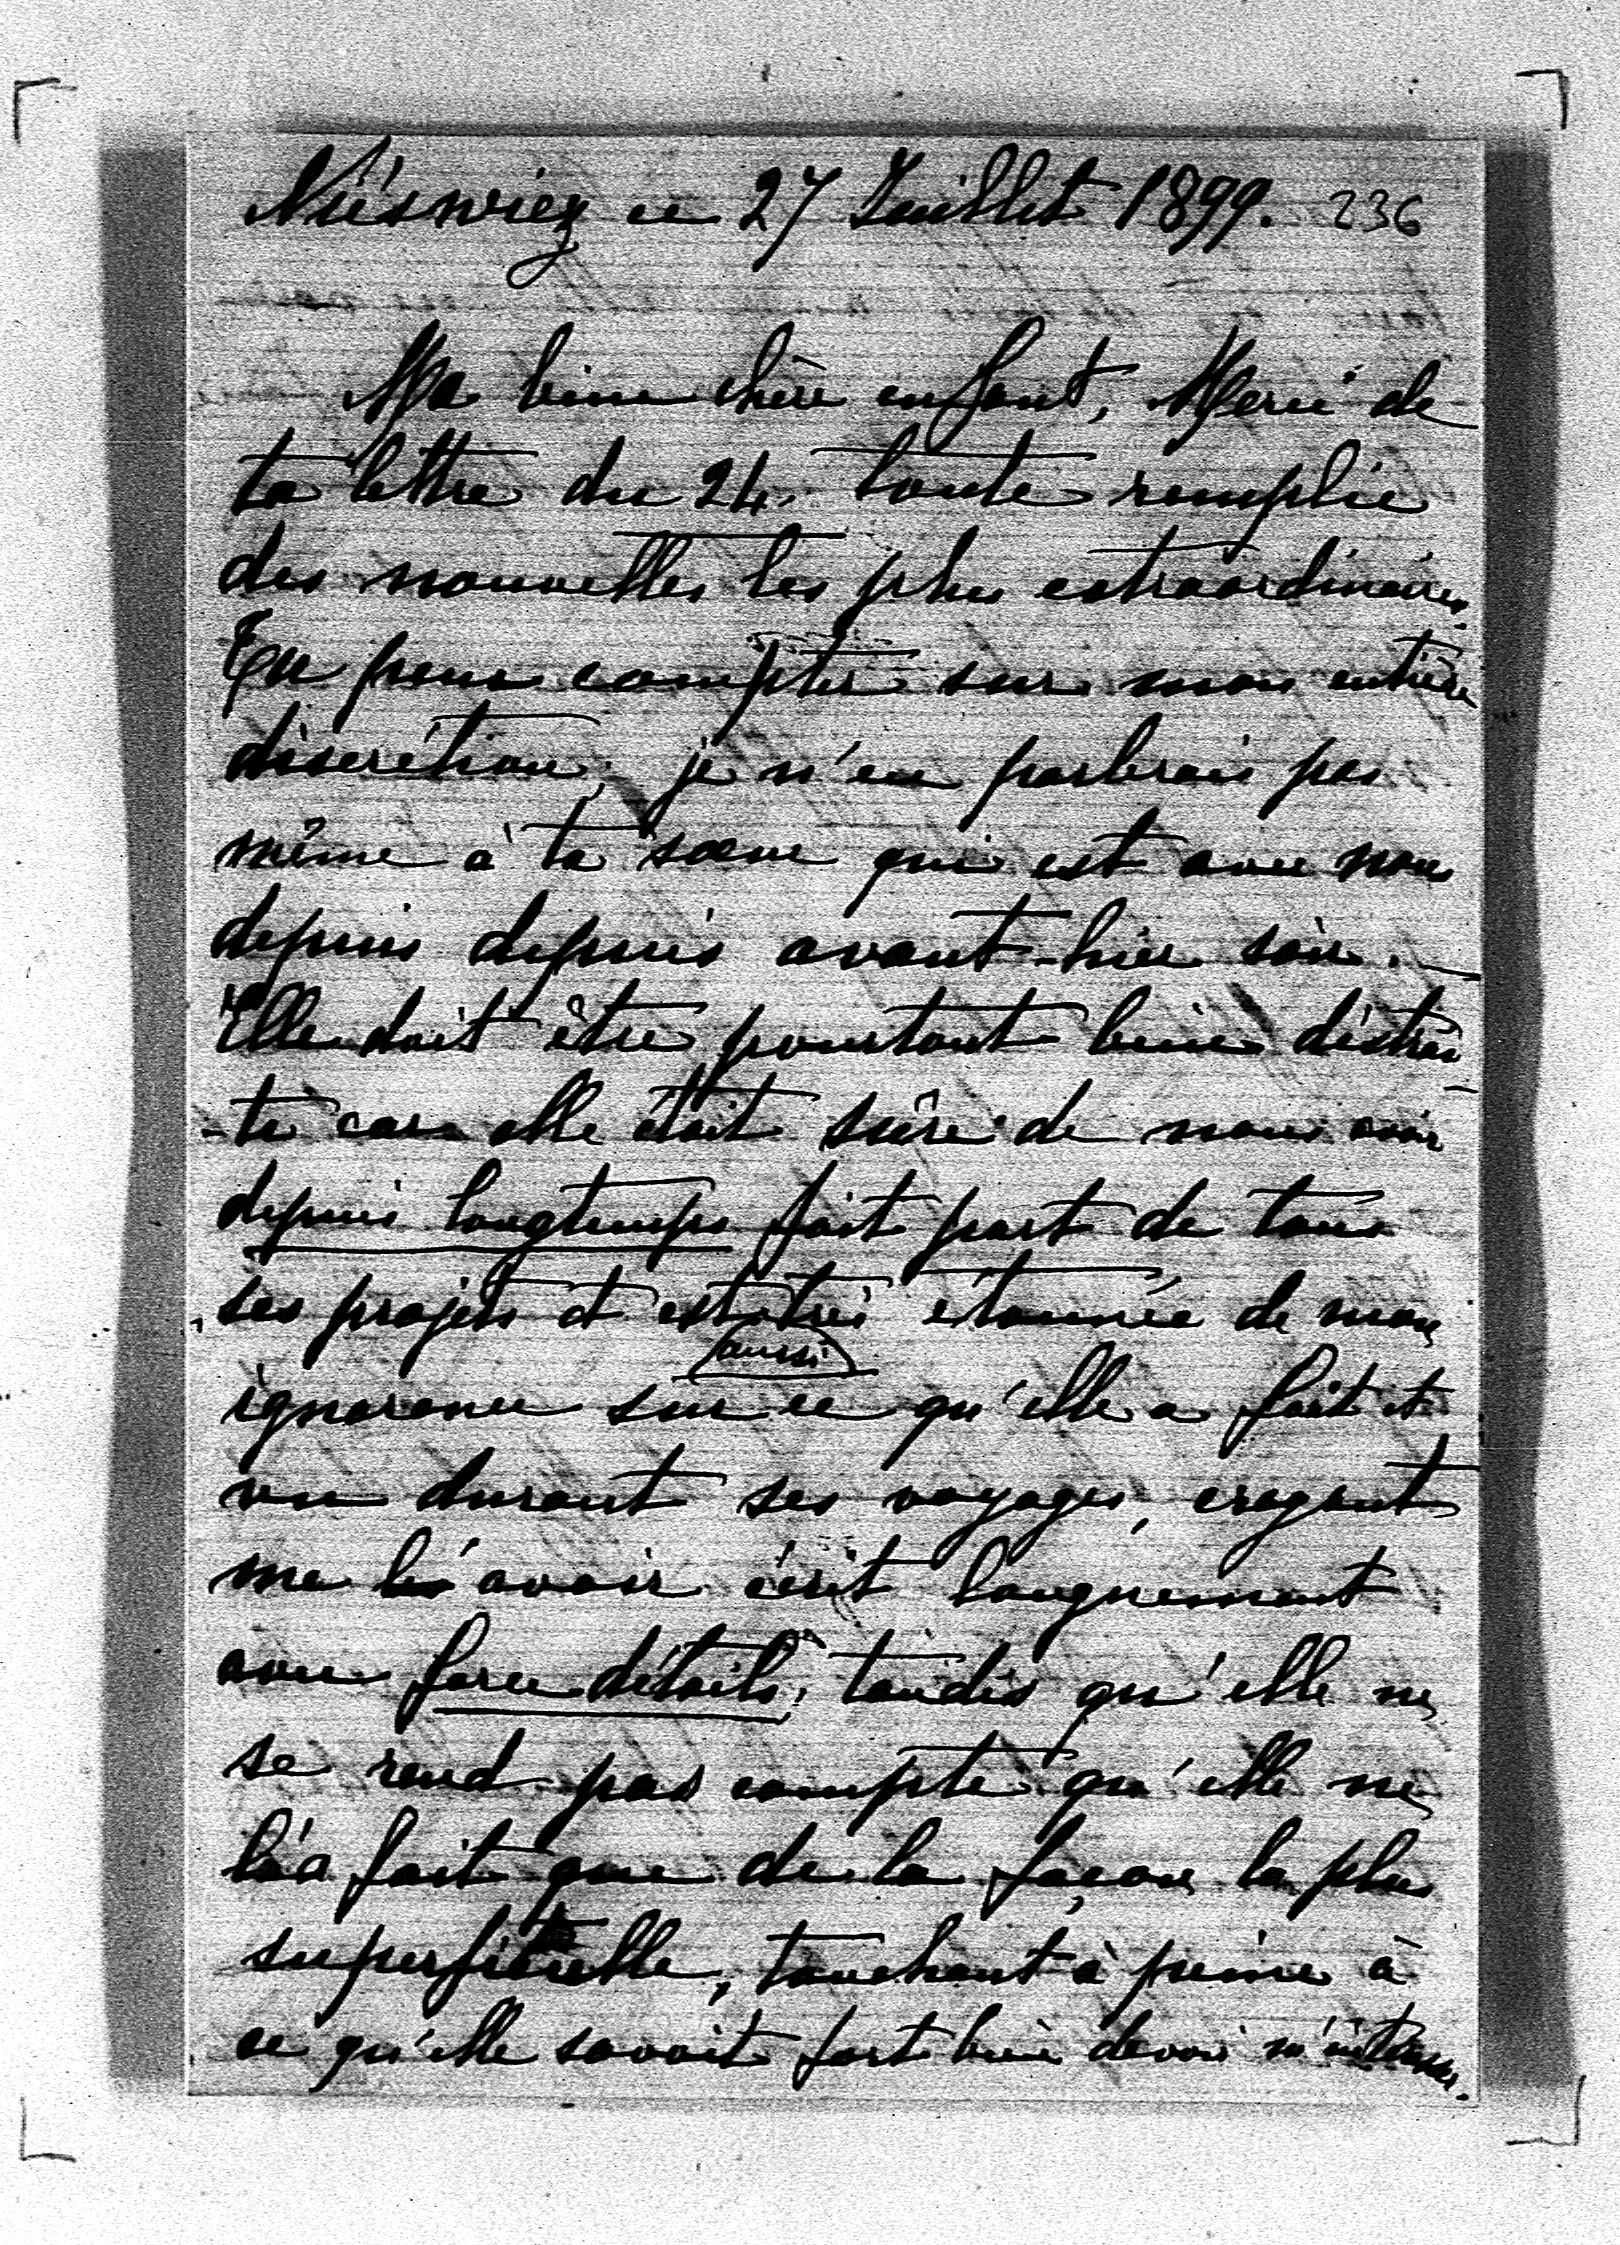 Niéswiez ce 27 Juillet 1899. 236
Ma bien chère enfant, Merci de
ta lettre du 24. toute remplie
des nouvelles les plus extraordinaires.
Tu peux compter sur mon entière
discrétion, je n'en parlerais pas
même à ta sœur qui est avec nous
depuis depuis avant-hier soir.
Elle doit être pourtant bien distrai
-te car elle était sûre de nous avoir
depuis longtemps fait part de tous
ses projets et est très étonnée de mon
aussi
ignorance sur ce qu'elle a fait et
vu durant ses voyages, croyant
me les avoir écrit longuement
avec force détails, tandis qu'elle ne
se rend pas compte qu'elle ne
l'a fait que de la façon la plus
superficielle, touchant à peine à
ce qu'elle savait fort bien devoir m'intéresser.